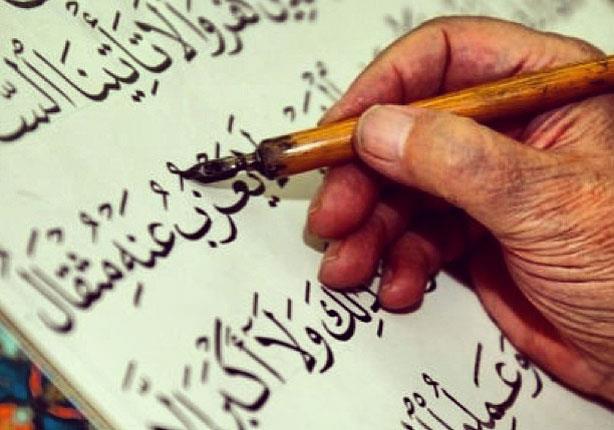 كَفَرُوا لَا تَأْتِينَا
يَعْزُبُ عَنْهُ مِثْقَالُ
وَلَا أَكْبَرُ
وَعَمِلُوا